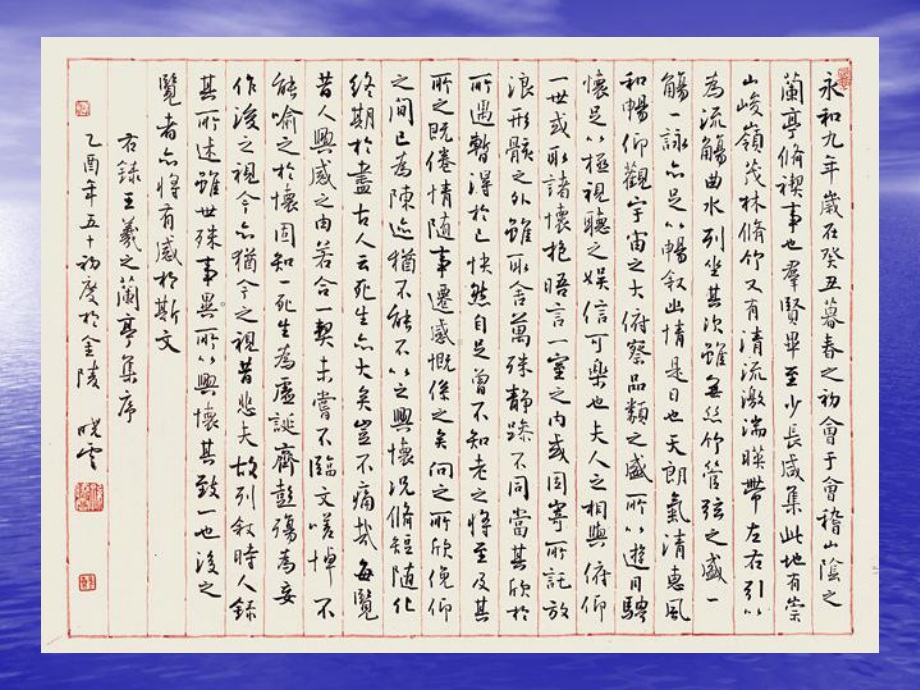 永和九年歲在癸丑暮春之初會于會稽山陰之
蘭亭脩禊事也羣賢畢至少長咸集此地有崇
山峻嶺茂林脩竹又有清流激湍暎帶左右引以
為流觴曲水列坐其次雖無絲竹管弦之盛一
觴一詠亦足以暢叙幽情是日也天朗氣清惠風
和暢仰觀宇宙之大俯察品類之盛所以遊目騁
懷足以極視聽之娛信可樂也夫人之相與俯仰
一世或取諸懷抱晤言一室之内或因寄所託放
浪形骸之外雖取舍萬殊静躁不同當其欣於
所遇暫得於己快然自足曾不知老之將至及其
所之既倦情隨事遷感慨係之矣向之所欣俛仰
之間已為陳迹猶不能不以之興懷況脩短随化
終期於盡古人云死生亦大矣豈不痛哉每覽
昔人興感之由若合一契未嘗不臨文嗟悼不
能喻之於懷固知一死生為虛誕齊彭殤為妄
作後之視今亦猶今之視昔悲夫故列叙時人錄
其所述雖世殊事異所以興懷其致一也後之
覽者亦將有感於斯文
右録王羲之蘭亭集序
乙酉年五十初度於金陵 曉雲